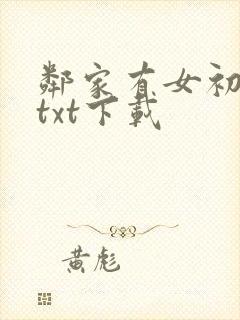 鄰家有女初
txt下載
黃彪